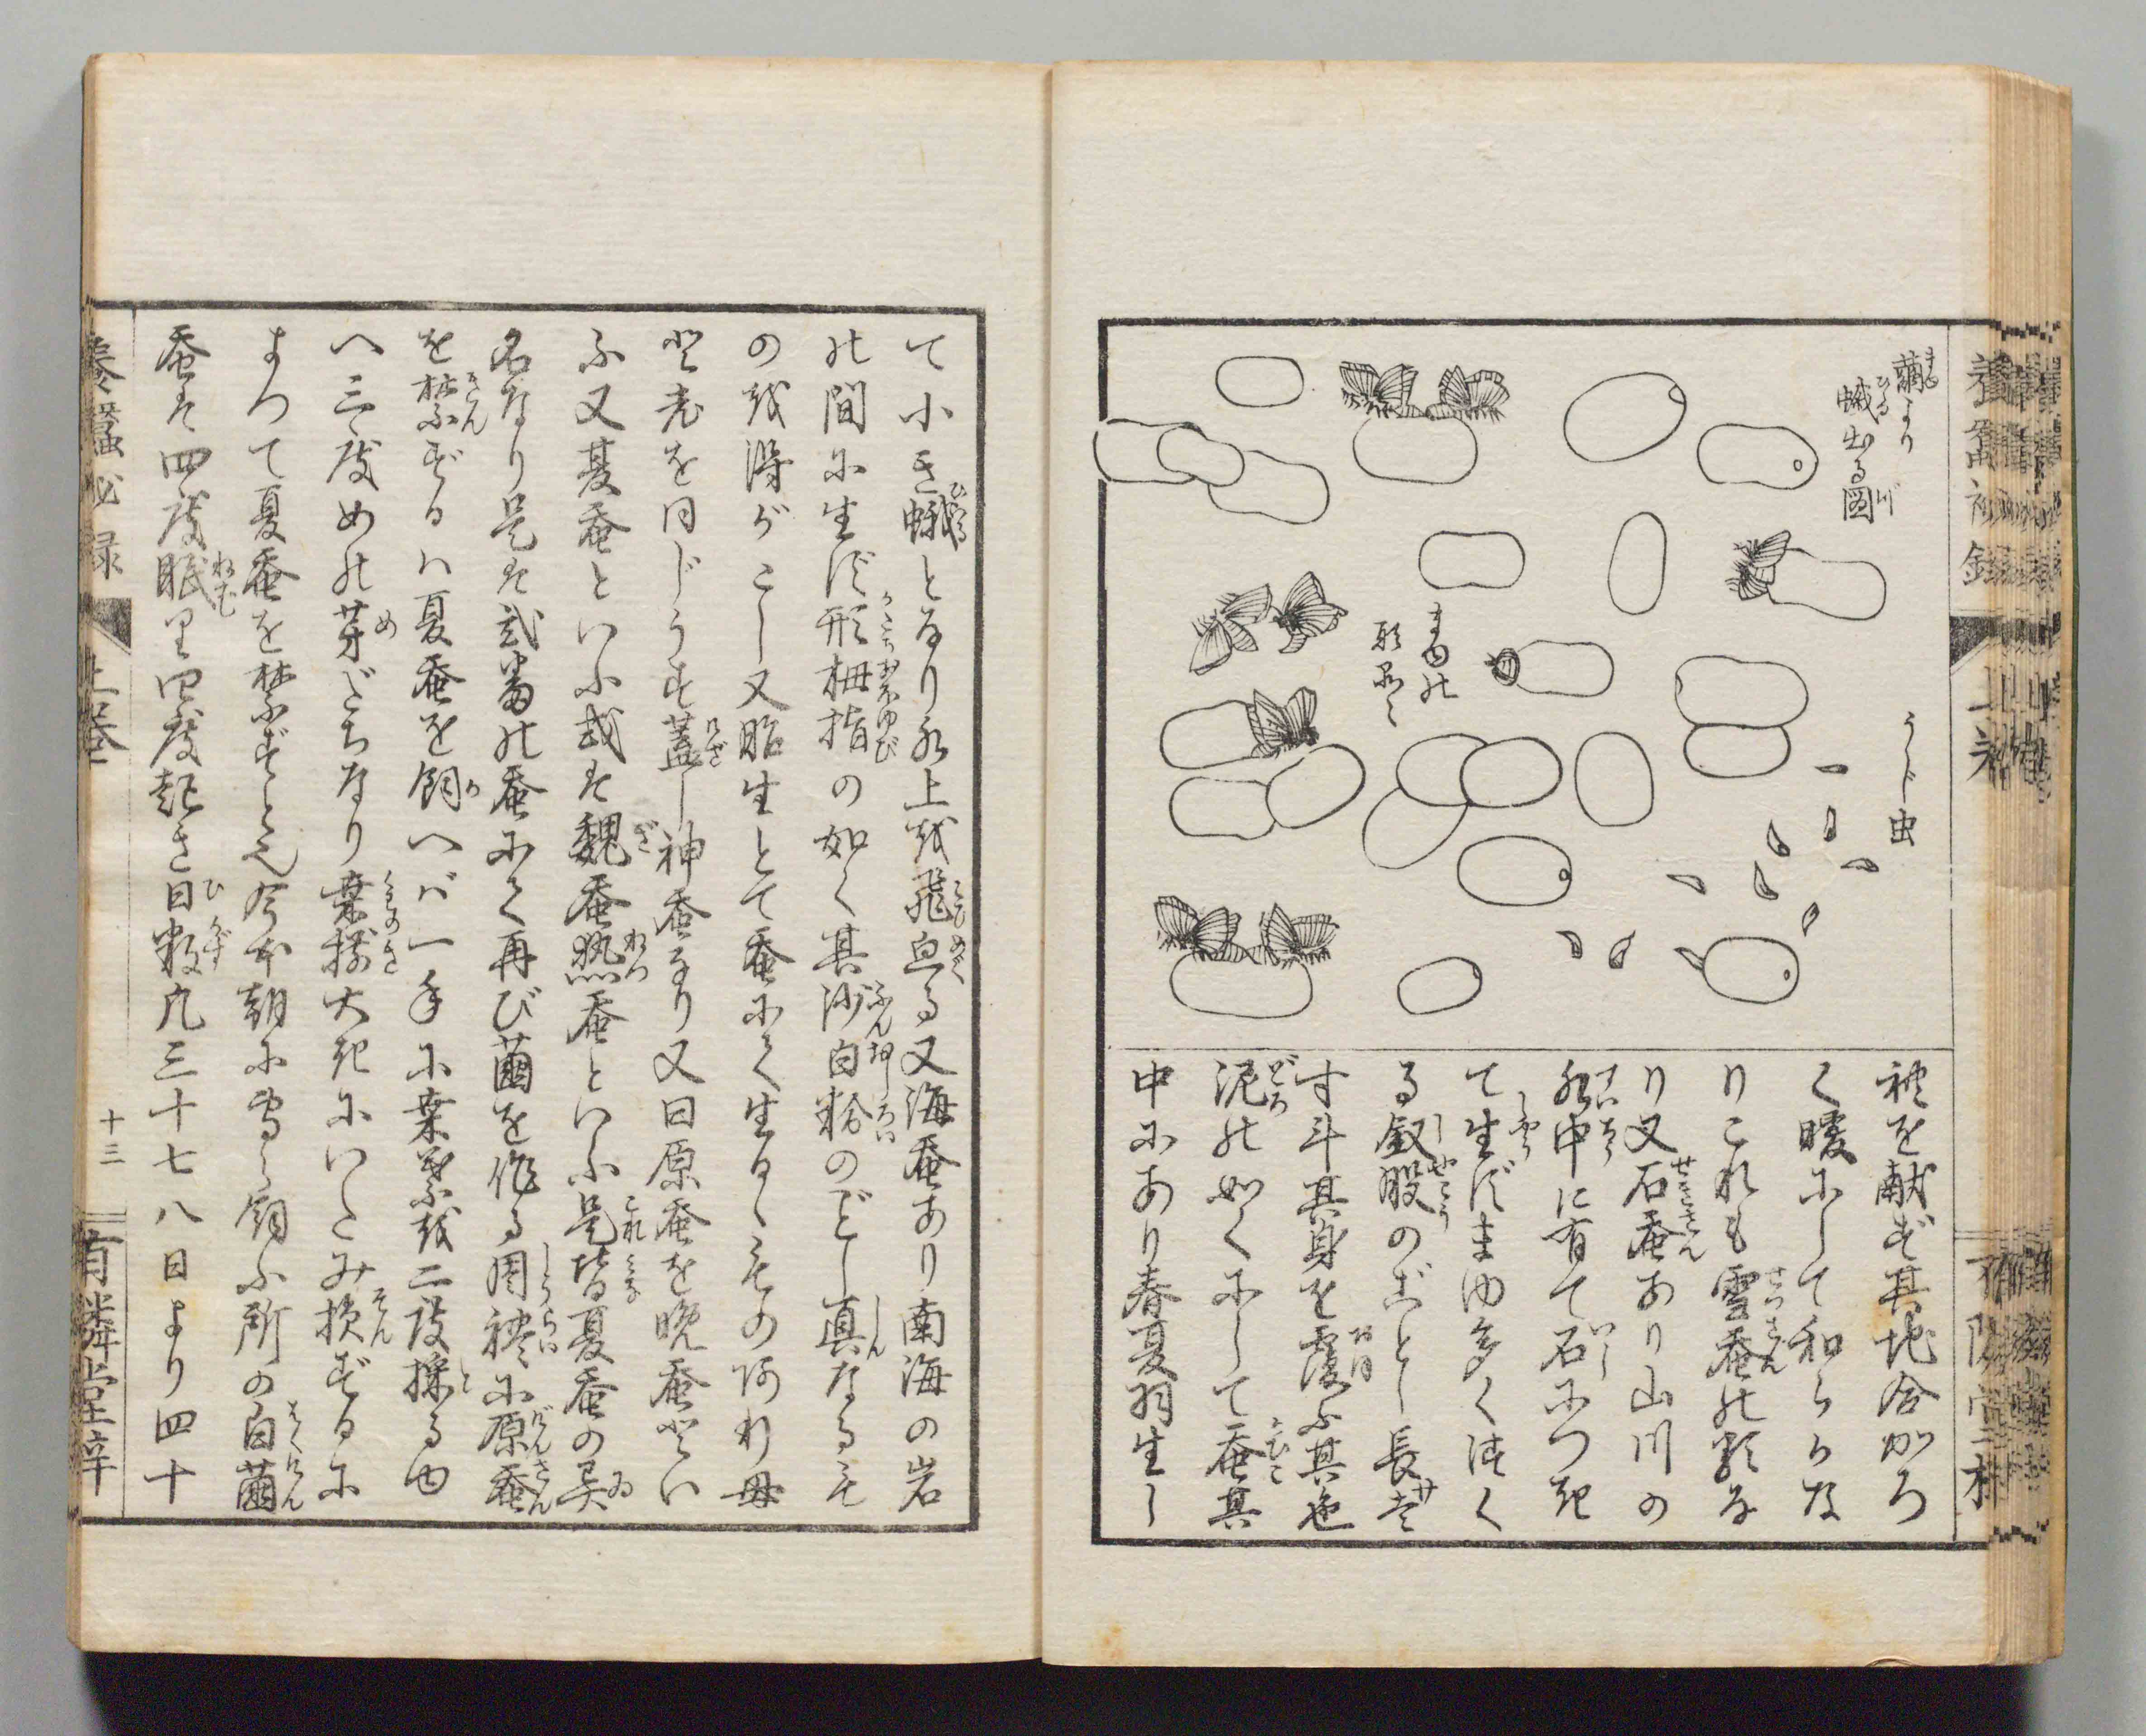 繭より
蛾出る図
うじ虫
まゆの
形品々
裃を献ず其地合かろ
く暖にして和らかな
りこれも雪蚕の類な
り又石蚕あり山川の
水中に有て石につき
て生ずまゆ多くつく
る釵股のごとし長壱
寸斗其身を覆ふ其色
泥の如くにして蚕其
中にあり春夏羽生し
て小き蛾となり水上を飛めぐる又海蚕あり南海の岩
の間に生ず形拇指の如く其沙白粉のごとし真なるも
の を得がこし又胎生とて蚕にて生るゝもの
母
と老を同じうす蓋し神蚕なり又曰原蚕を晩蚕とい
ふ又夏蚕といふ或は魏蚕熱蚕といふ是皆夏蚕の異
名なり是は弐番の蚕にて再び繭を作る周礼に原蚕
を禁ずるハ夏蚕を飼へバ一年に桑葉を二度採るゆ
へ三度めの芽だちなり葉樹大きにいたみ損ずるに
よつて夏蚕を禁ずと也今本朝に専ら飼ふ所の白繭
蚕は四度眠り四度起き日数凡三十七八日より四十
養蚕秘録
上巻
十三